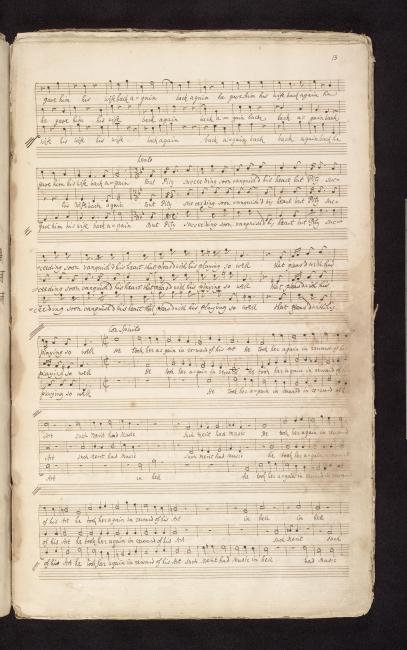 13
gave him his wife back a-gain back again he gave him his wife back again he
he gave him his wife back again back a-gain back back a-gain back
wife his wife his wife back again back a-gain back back again back he
Lento
gave him his wife back a-gain But Pity succeeding soon vanquish'd his heart but Pity suc-
his wife back again But Pity succeeding soon vanquish'd his heart but Pity suc-
gave him his wife back a-gain But Pity succeeding soon vanquish'd his heart but Pity suc-
-ceeding soon vanquish'd his heart that play'd with his playing so well that play'd with his
-ceeding soon vanquish'd his heart that play'd with his playing so well that play'd with his
-ceeding soon vanquish'd his heart that play'd with his playing so well that play'd with his
Con Spirito
playing so well He took her again in reward of his Art He took her again in reward of his
playing so well He took her again in reward He took her again in reward of
playing so well He took her again in reward of his
Art such merit had Music such merit had Music He took her again in reward
Art such merit had Music such merit had Music he took her again in reward
Art in hell he took her again in reward
of his Art he took her again in reward of his Art in hell in hell
of his Art he took her again in reward of his Art such merit such
of his Art he took her again in reward of his Art such merit had Music in hell had Music